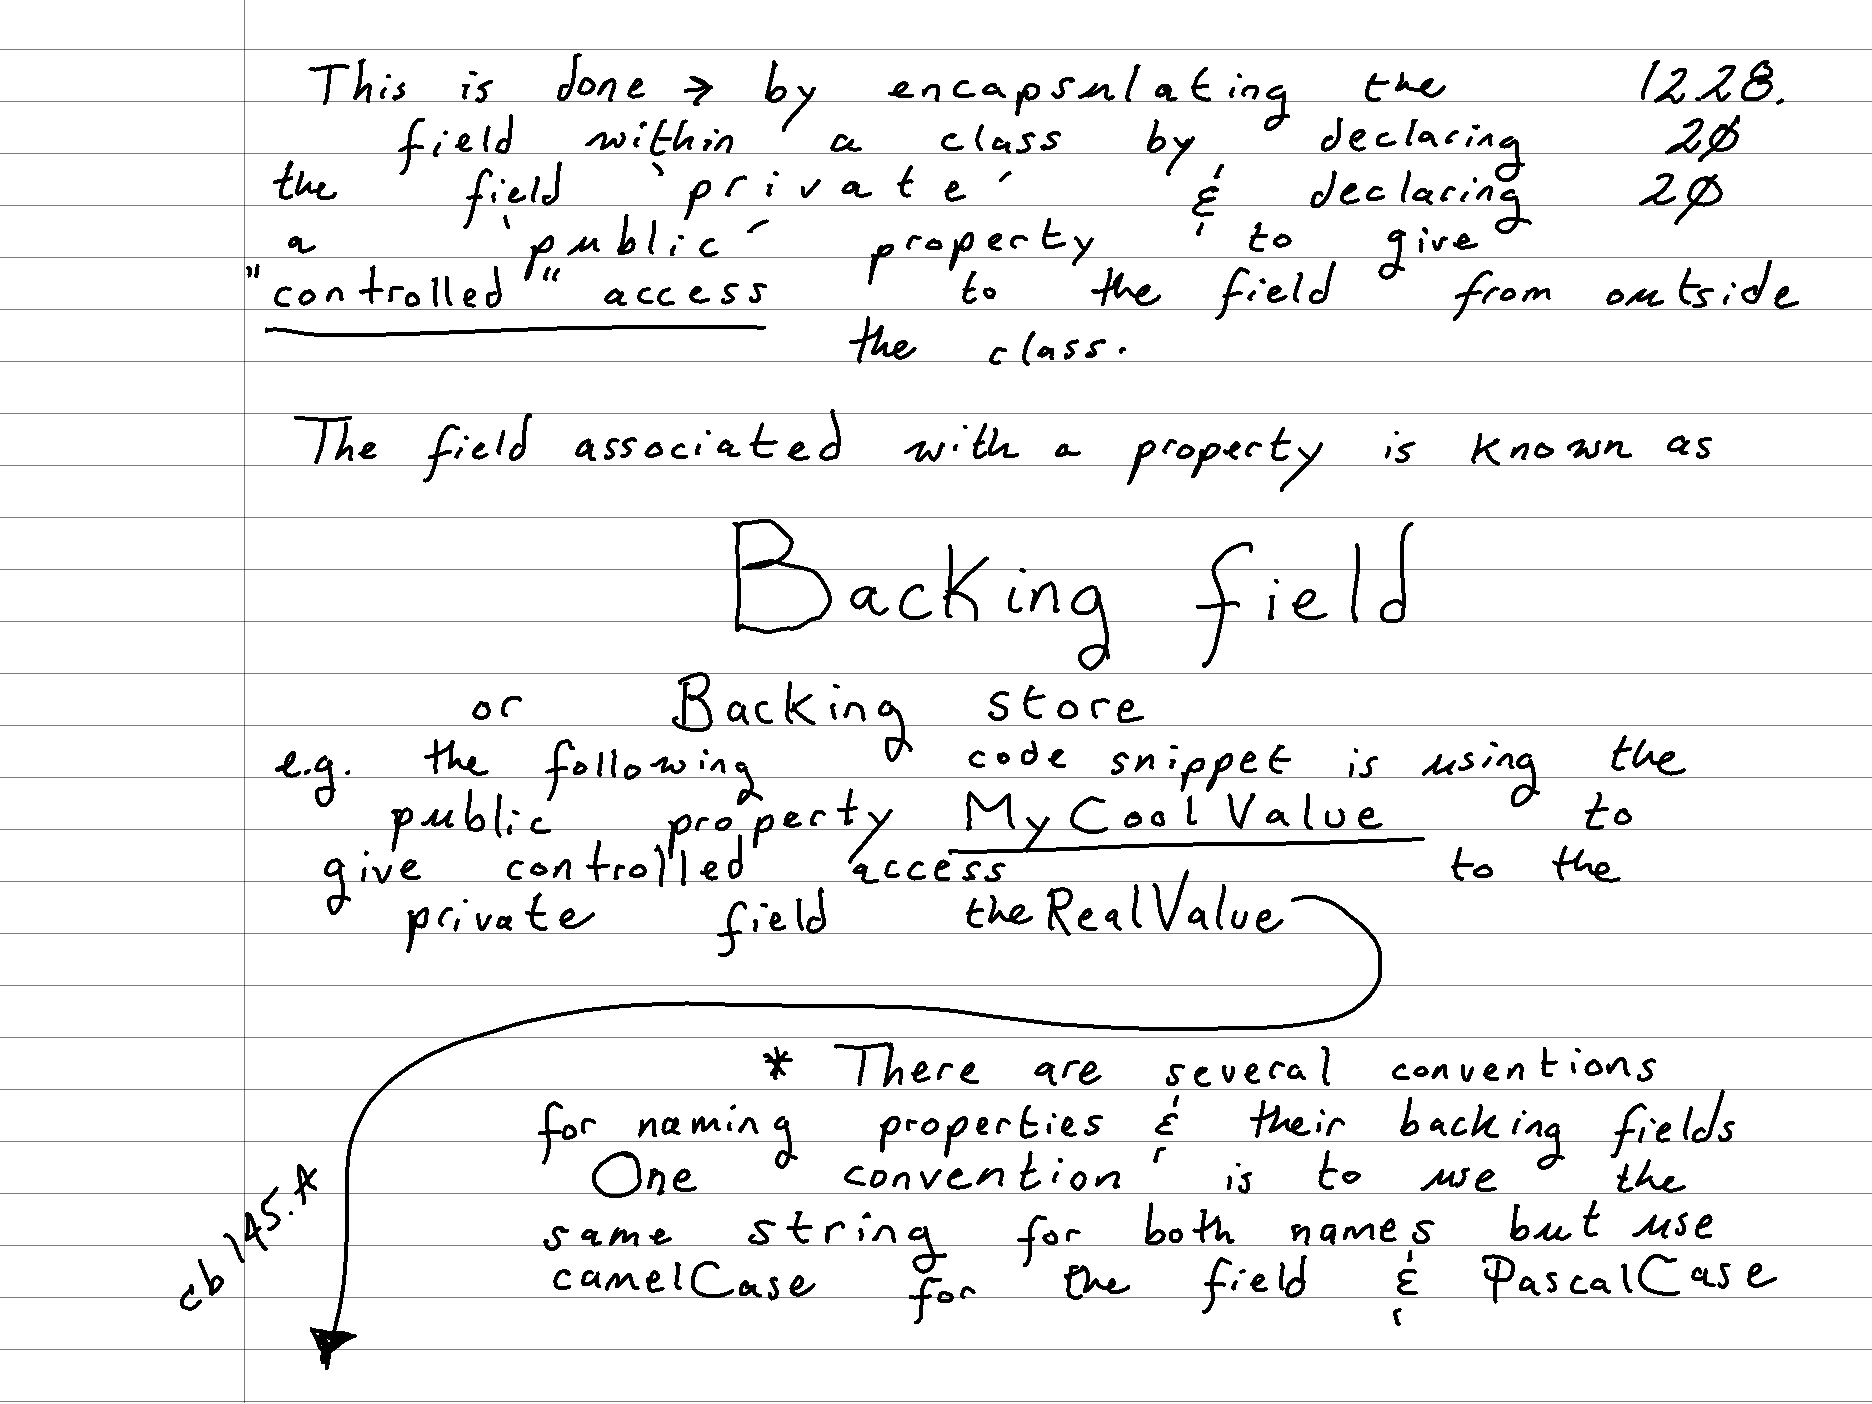 This is done → by encapsulating the 1228.
field within a class by declaring 20
the field 'private' & declaring 20
a 'public' property to give
"controlled" access to the field from outside
the class.
The field associated with a property is known as
Backing field
or Backing store
e.g. the following code snippet is using the
public property MyCoolValue to
give controlled access to the
private field theRealValue
* There are several conventions
for naming properties & their backing fields
One convention is to use the
same string for both names but use
camelCase for the field & PascalCase
cb 145.*